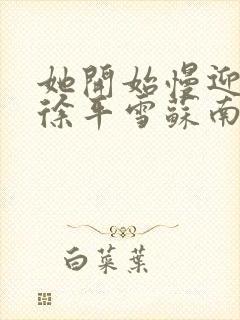 她開始慢迎
徐平雪蘇南
白菜葉